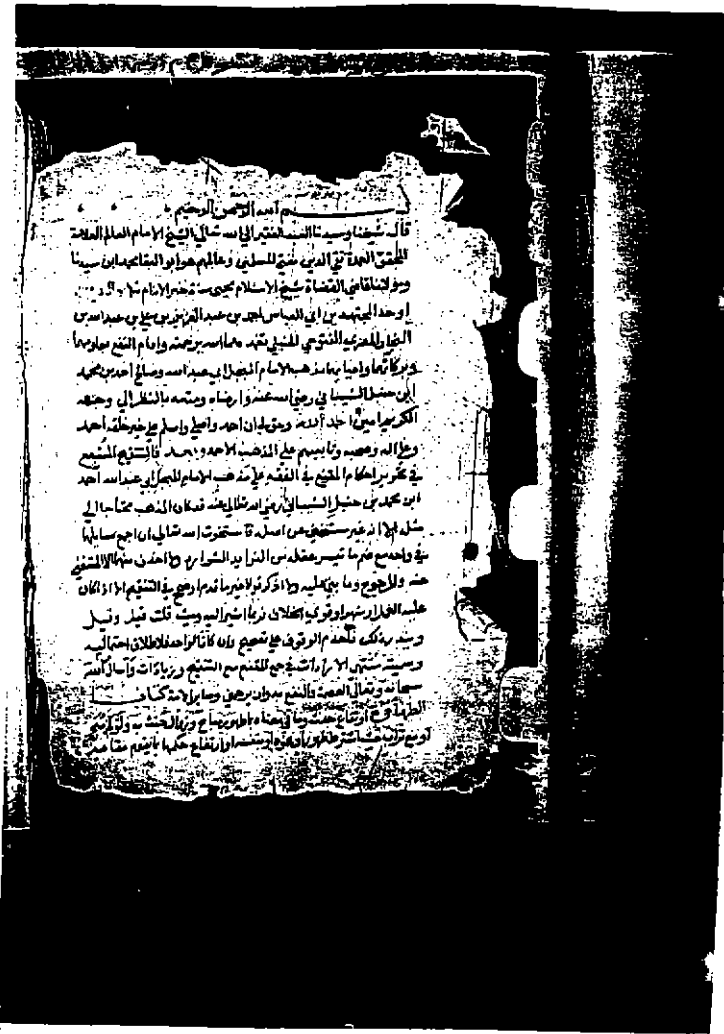 بسم الله الرحمن الرحيم
قال شيخنا وسيدنا العبد الفقير الى الله تعالى الشيخ الامام العالم العلامة
المحقق العمدة تقي الدين بقية المسلمين وعالمهم هو ابو البقا محمد ابن سيدنا
ومولانا قاضي القضاة شيخ الاسلام
اوحد المجتهدين ابي العباس احمد بن عبد العزيز بن علي بن عبد الله بن
النجار المصري الفتوحي الحنبلي تغمدهما الله برحمته وادام النفع بعلومهما
وبركاتهما واحيا بهما مذهب الامام المبجل ابي عبد الله وصالح احمد بن محمد
ابن حنبل الشيباني رضي الله عنه وارضاه ومتعه بالنظر الى وجهه
الكريم امين احمد الله وحق لي ان احمد واصلي واسلم على خير خلقه احمد
وعلى اله وصحبه وتابعيهم على المذهب الاحمد وبعد فالتنقيح المشبع
في تحرير احكام المقنع في الفقه على مذهب الامام المبجل ابي عبد الله احمد
ابن محمد بن حنبل الشيباني رضي الله تعالى عنه قد كان المذهب محتاجا الى
مثله الا انه غير مستغني عن اصله فاستخرت الله تعالى ان اجمع مسايلهما
في واحد مع ضم ما تيسر عقله من الفوايد الشوارد ولا احذف منهما الا المستغني
عنه والمرجوح وما بني عليه ولا اذكر قولا غير ما قدم او صحح في التنقيح الا اذا كان
عليه العمل او شهر او قوي الخلاف فربما اشير اليه وحيث قلت قيل وقيل
ويندر ذلك فلعدم الوقوف على تصحيح وان كانا لواحد فلاطلاق احتماليه
وسميته منتهى الارادات في جمع المقنع مع التنقيح وزيادات واسأل الله
سبحانه وتعالى العصمة والنفع به وان يرحمني وساير الامة كتاب
الطهارة ارتفاع حدث وما في معناه بماء طهور مباح وزوال خبث به ولو لم يبح
او مع تراب طهور او نحوه او بنفسه او ارتفاع حكمهما بما يقوم مقامه